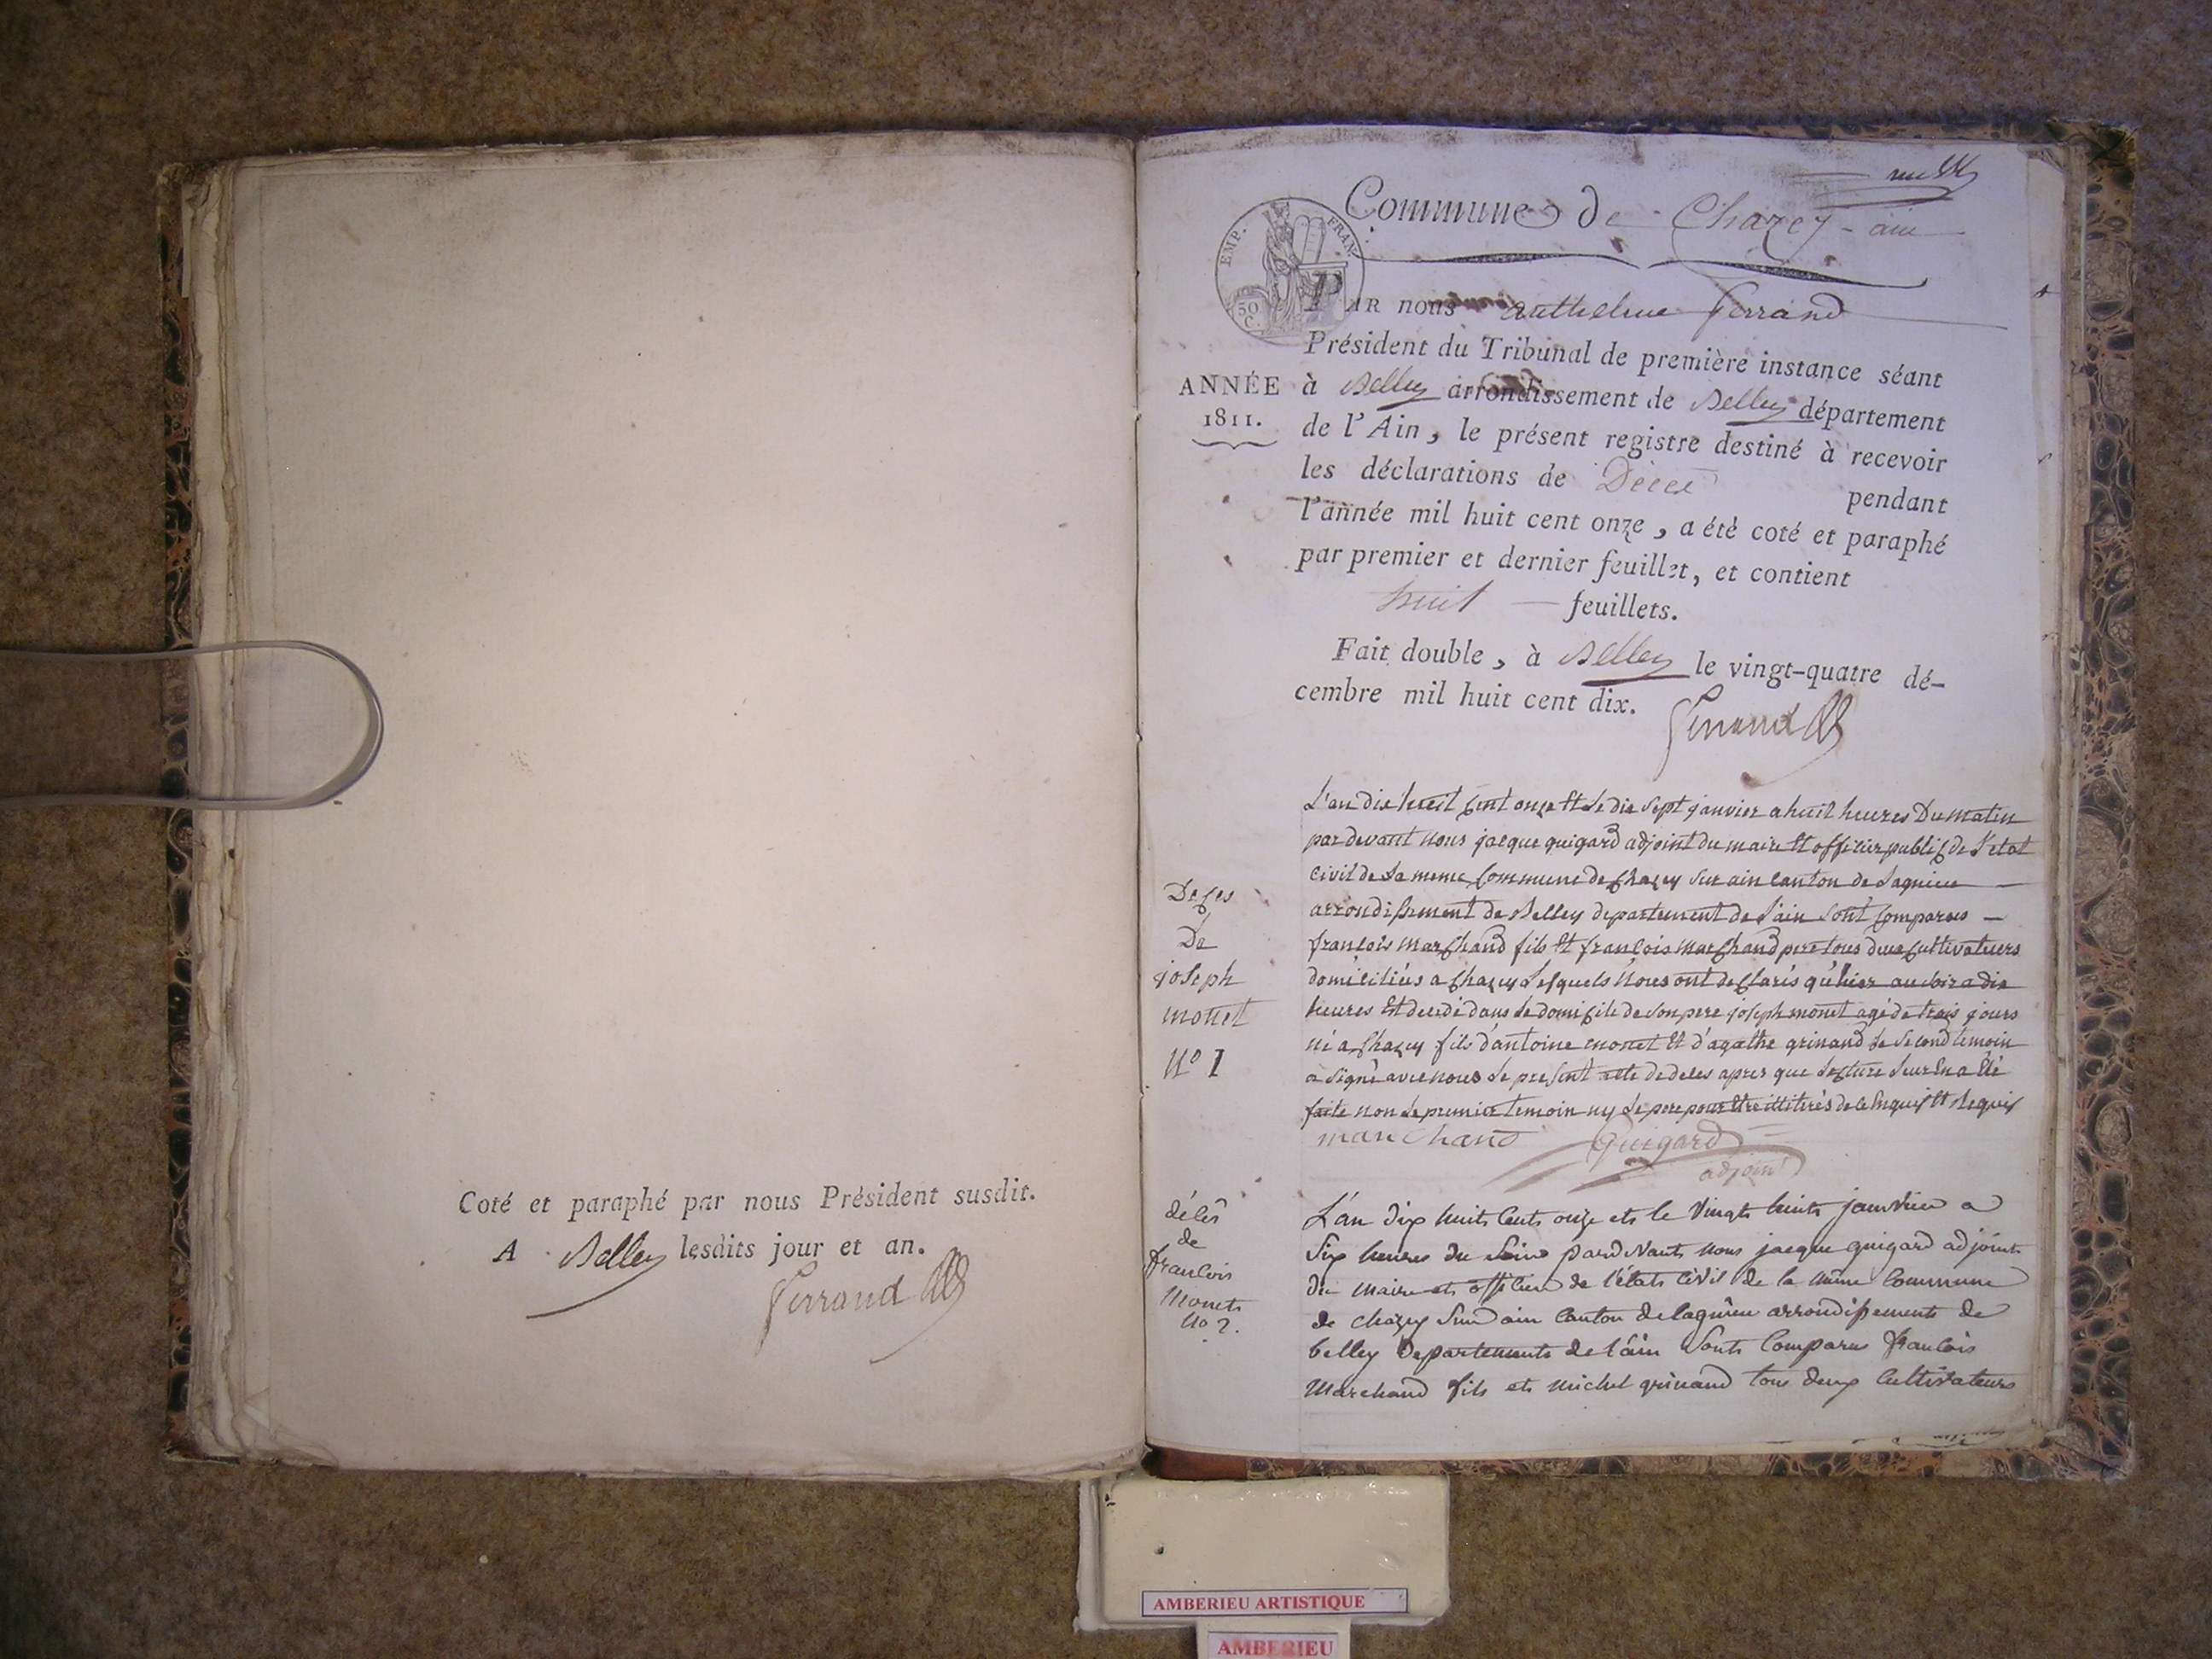 Coté et paraphé par nous Président susdit.
A Belley lesdits jour et an.
Ferrand
Commune de Chazey-ain
EMP. FRAN.
50 C.
PAR nous Anthelme Ferrand
Président du Tribunal de première instance séant
ANNÉE
1811.
à Belley arrondissement de Belley département
de l'Ain, le présent registre destiné à recevoir
les déclarations de Décès pendant
l'année mil huit cent onze, a été coté et paraphé
par premier et dernier feuillet, et contient
huit feuillets.
Fait double, à Belley le vingt-quatre dé-
cembre mil huit cent dix.
Ferrand
Deces
De
joseph
monet
N° 1
L'an dix huit cent onze Et le dix sept janvier a huit heures Du matin
par devant nous jacque guigard adjoint du maire Et officier public de l'etat
civil de la meme Commune de Chazey sur ain canton de Lagnieu
arrondissement de Belley departement de l'ain sont Comparus
françois marchand fils Et françois marchand pere tous deux Cultivateurs
domiciliés a Chazey Lesquels nous ont declarés qu'hier au soir a dix
heures Est decedé dans le domicile de son pere joseph monet agé de trois jours
né a Chazey fils d'antoine monet Et d'agathe grinand le second temoin
a signé avec nous le present acte de deces apres que lecture leur En a Eté
faite non le premier temoin ny le pere pour Etre illiterés de ce Enquis Et Requis
marchand Guigard
adjoint
décès
de
francois
Monet
No 2.
L'an dix huit Cents onze et le Vingt huit janvier a
Six heures du Soir pardevant nous jacque guigard adjoint
du Maire et officier de l'état Civil de la même Commune
de chazey Sur ain Canton de lagnieu arrondissement de
belley Departement de l'ain Sont Comparus francois
Marchand fils et michel grinand tous deux Cultivateurs
AMBERIEU ARTISTIQUE
AMBERIEU